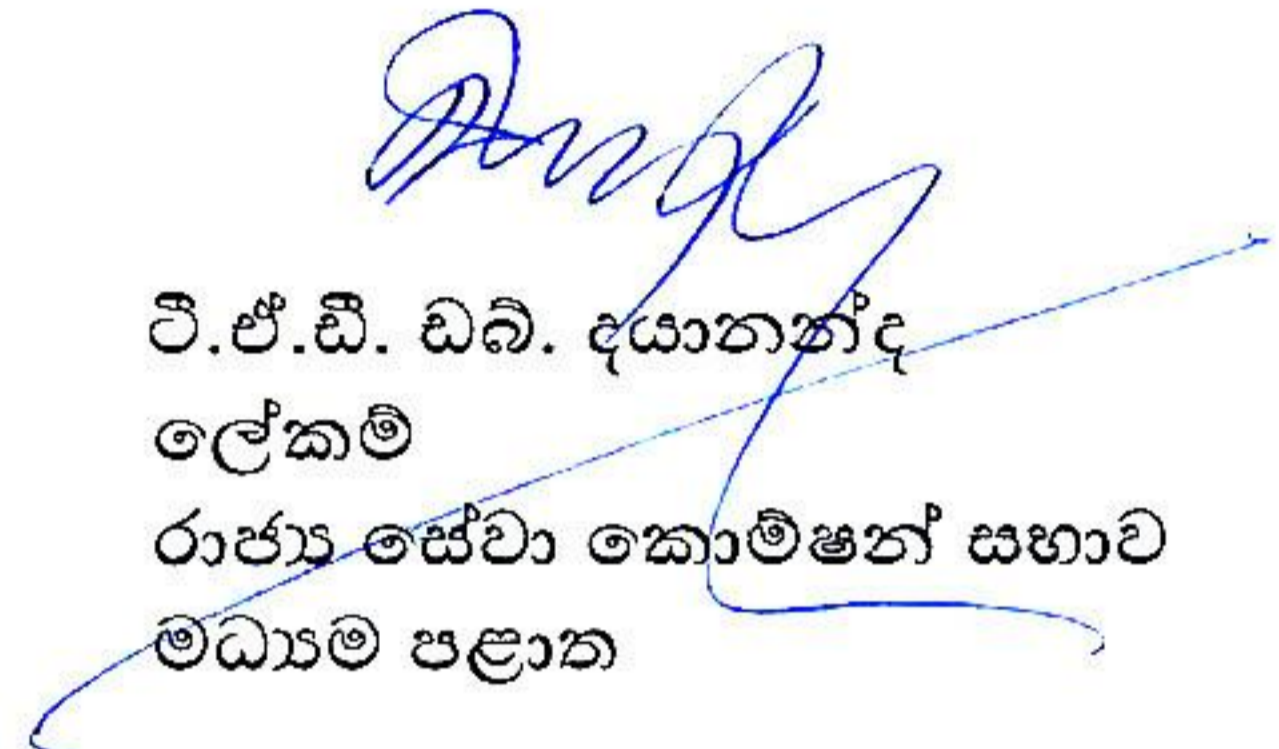 ටී.ඒ.ඩී. ඩබ්. දයානන්ද
ලේකම්
රාජ්‍ය සේවා කොමිෂන් සභාව
මධ්‍යම පළාත